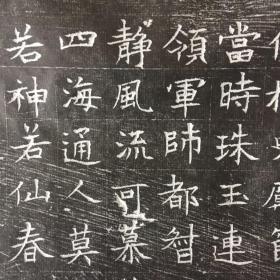 當時珠玉連
領軍師都督
靜風流可慕
四海通人莫
若神若仙春